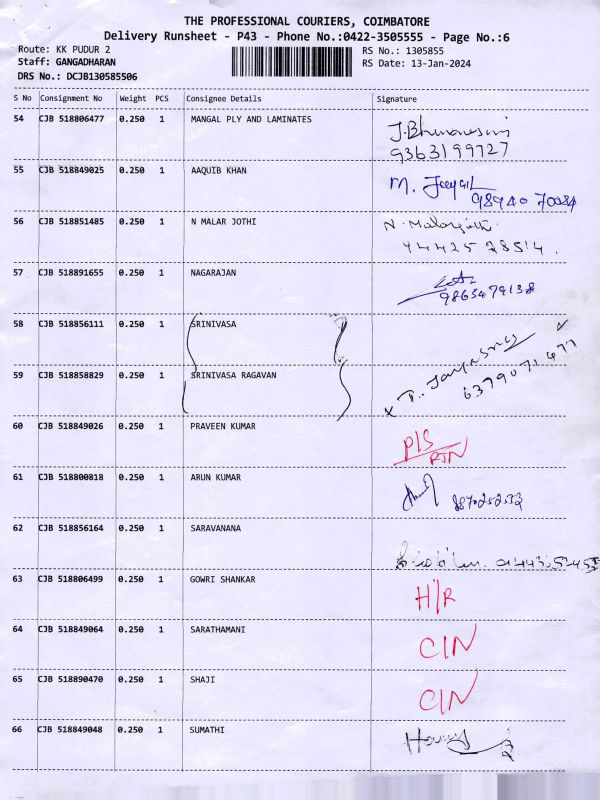 THE PROFESSIONAL COURIERS, COIMBATORE
Delivery Runsheet - P43 - Phone No.:0422-3505555 - Page No.:6
Route: KK PUDUR 2
RS No.: 1305855
Staff: GANGADHARAN
RS Date: 13-Jan-2024
DRS No.: DCJB130585506
S No Consignment No Weight PCS Consignee Details Signature
54 CJB 518806477 0.250 1 MANGAL PLY AND LAMINATES
9363199727
55 CJB 518849025 0.250 1 AAQUIB KHAN
M.
98940 70084
56 CJB 518851485 0.250 1 N MALAR JOTHI
94425 28514.
57 CJB 518891655 0.250 1 NAGARAJAN
9865479138
58 CJB 518856111 0.250 1 SRINIVASA
59 CJB 518858829 0.250 1 SRINIVASA RAGAVAN
6379071477
60 CJB 518849026 0.250 1 PRAVEEN KUMAR
P/S
RTN
61 CJB 518800818 0.250 1 ARUN KUMAR
62 CJB 518856164 0.250 1 SARAVANANA
63 CJB 518806499 0.250 1 GOWRI SHANKAR H/R
64 CJB 518849064 0.250 1 SARATHAMANI CIN
65 CJB 518890470 0.250 1 SHAJI CIN
66 CJB 518849048 0.250 1 SUMATHI